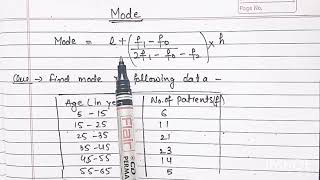 Page No.
Mode
Mode = l + (f₁ - f₀ / 2f₁ - f₀ - f₂) × h
Que → find mode following data -
Age (in ye No. of patients (f)
5 - 15 6
15 - 25 11
25 - 35 21
35 - 45 23
45 - 55 14
55 - 65 5
Fair
PERMA